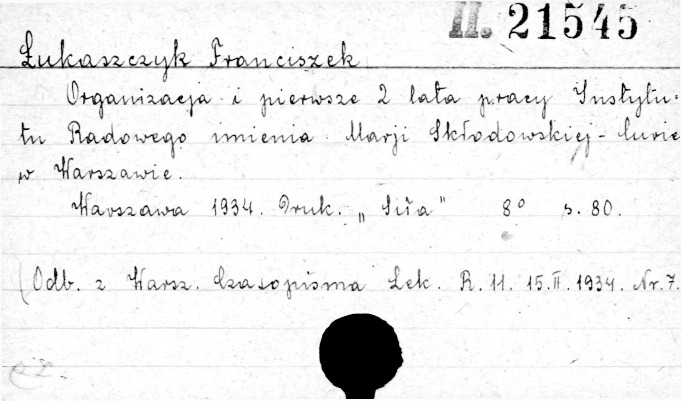 II. 21545
Łukaszczyk Franciszek
Organizacja i pierwsze 2 lata pracy Instytu-
tu Radowego imienia Marji Skłodowskiej-Curie
w Warszawie.
Warszawa 1934. Druk. „Siła" 8° s. 80.
(Odb. z Warsz. Czasopisma Lek. R. 11. 15.II.1934. Nr. 7.